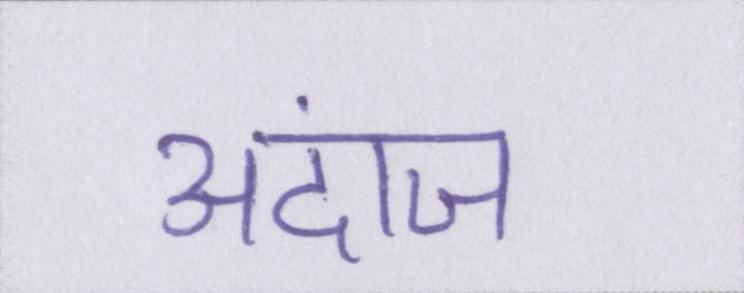 अंदाज